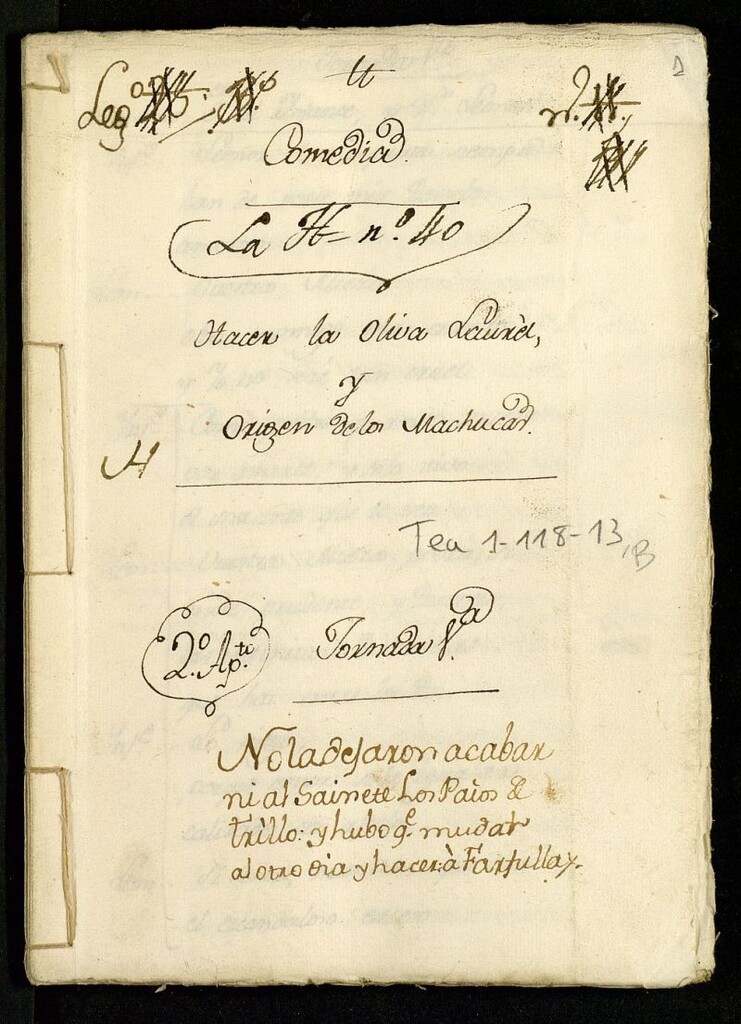 tt
1
Leg.º
n.º
Comedia.
La H= n.º 40
Hacer la Oliva Laurèl,
y
Origen de los Machucas.
H
Tea 1-118-13, B
2.º Ap.to
Jornada 1.ª
No la dejaron acabar
ni al Sainete Los Paios de
Trillo: y hubo q.e mudar
al otro dia y hacer à Farfulla.